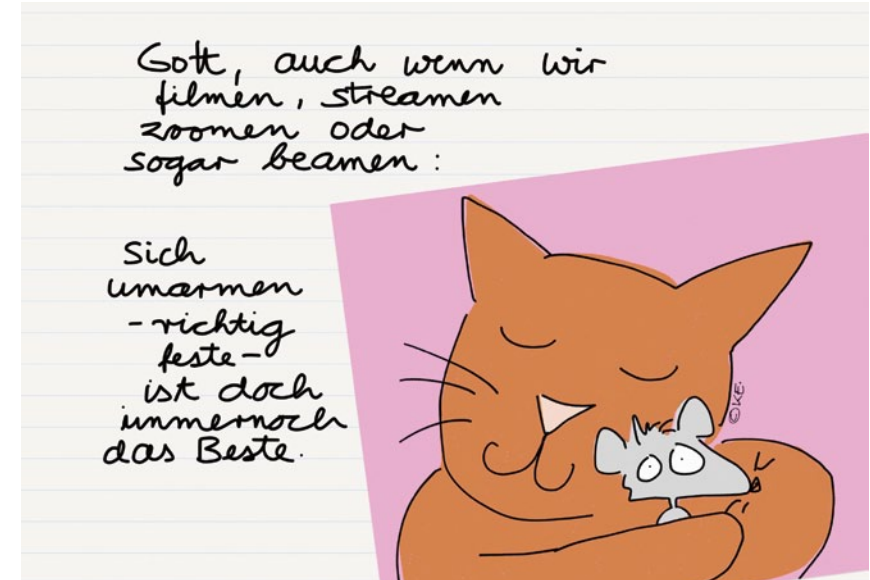 Gott, auch wenn wir
filmen, streamen
zoomen oder
sogar beamen:
Sich
umarmen
- richtig
feste -
ist doch
immernoch
das Beste.
©KE.